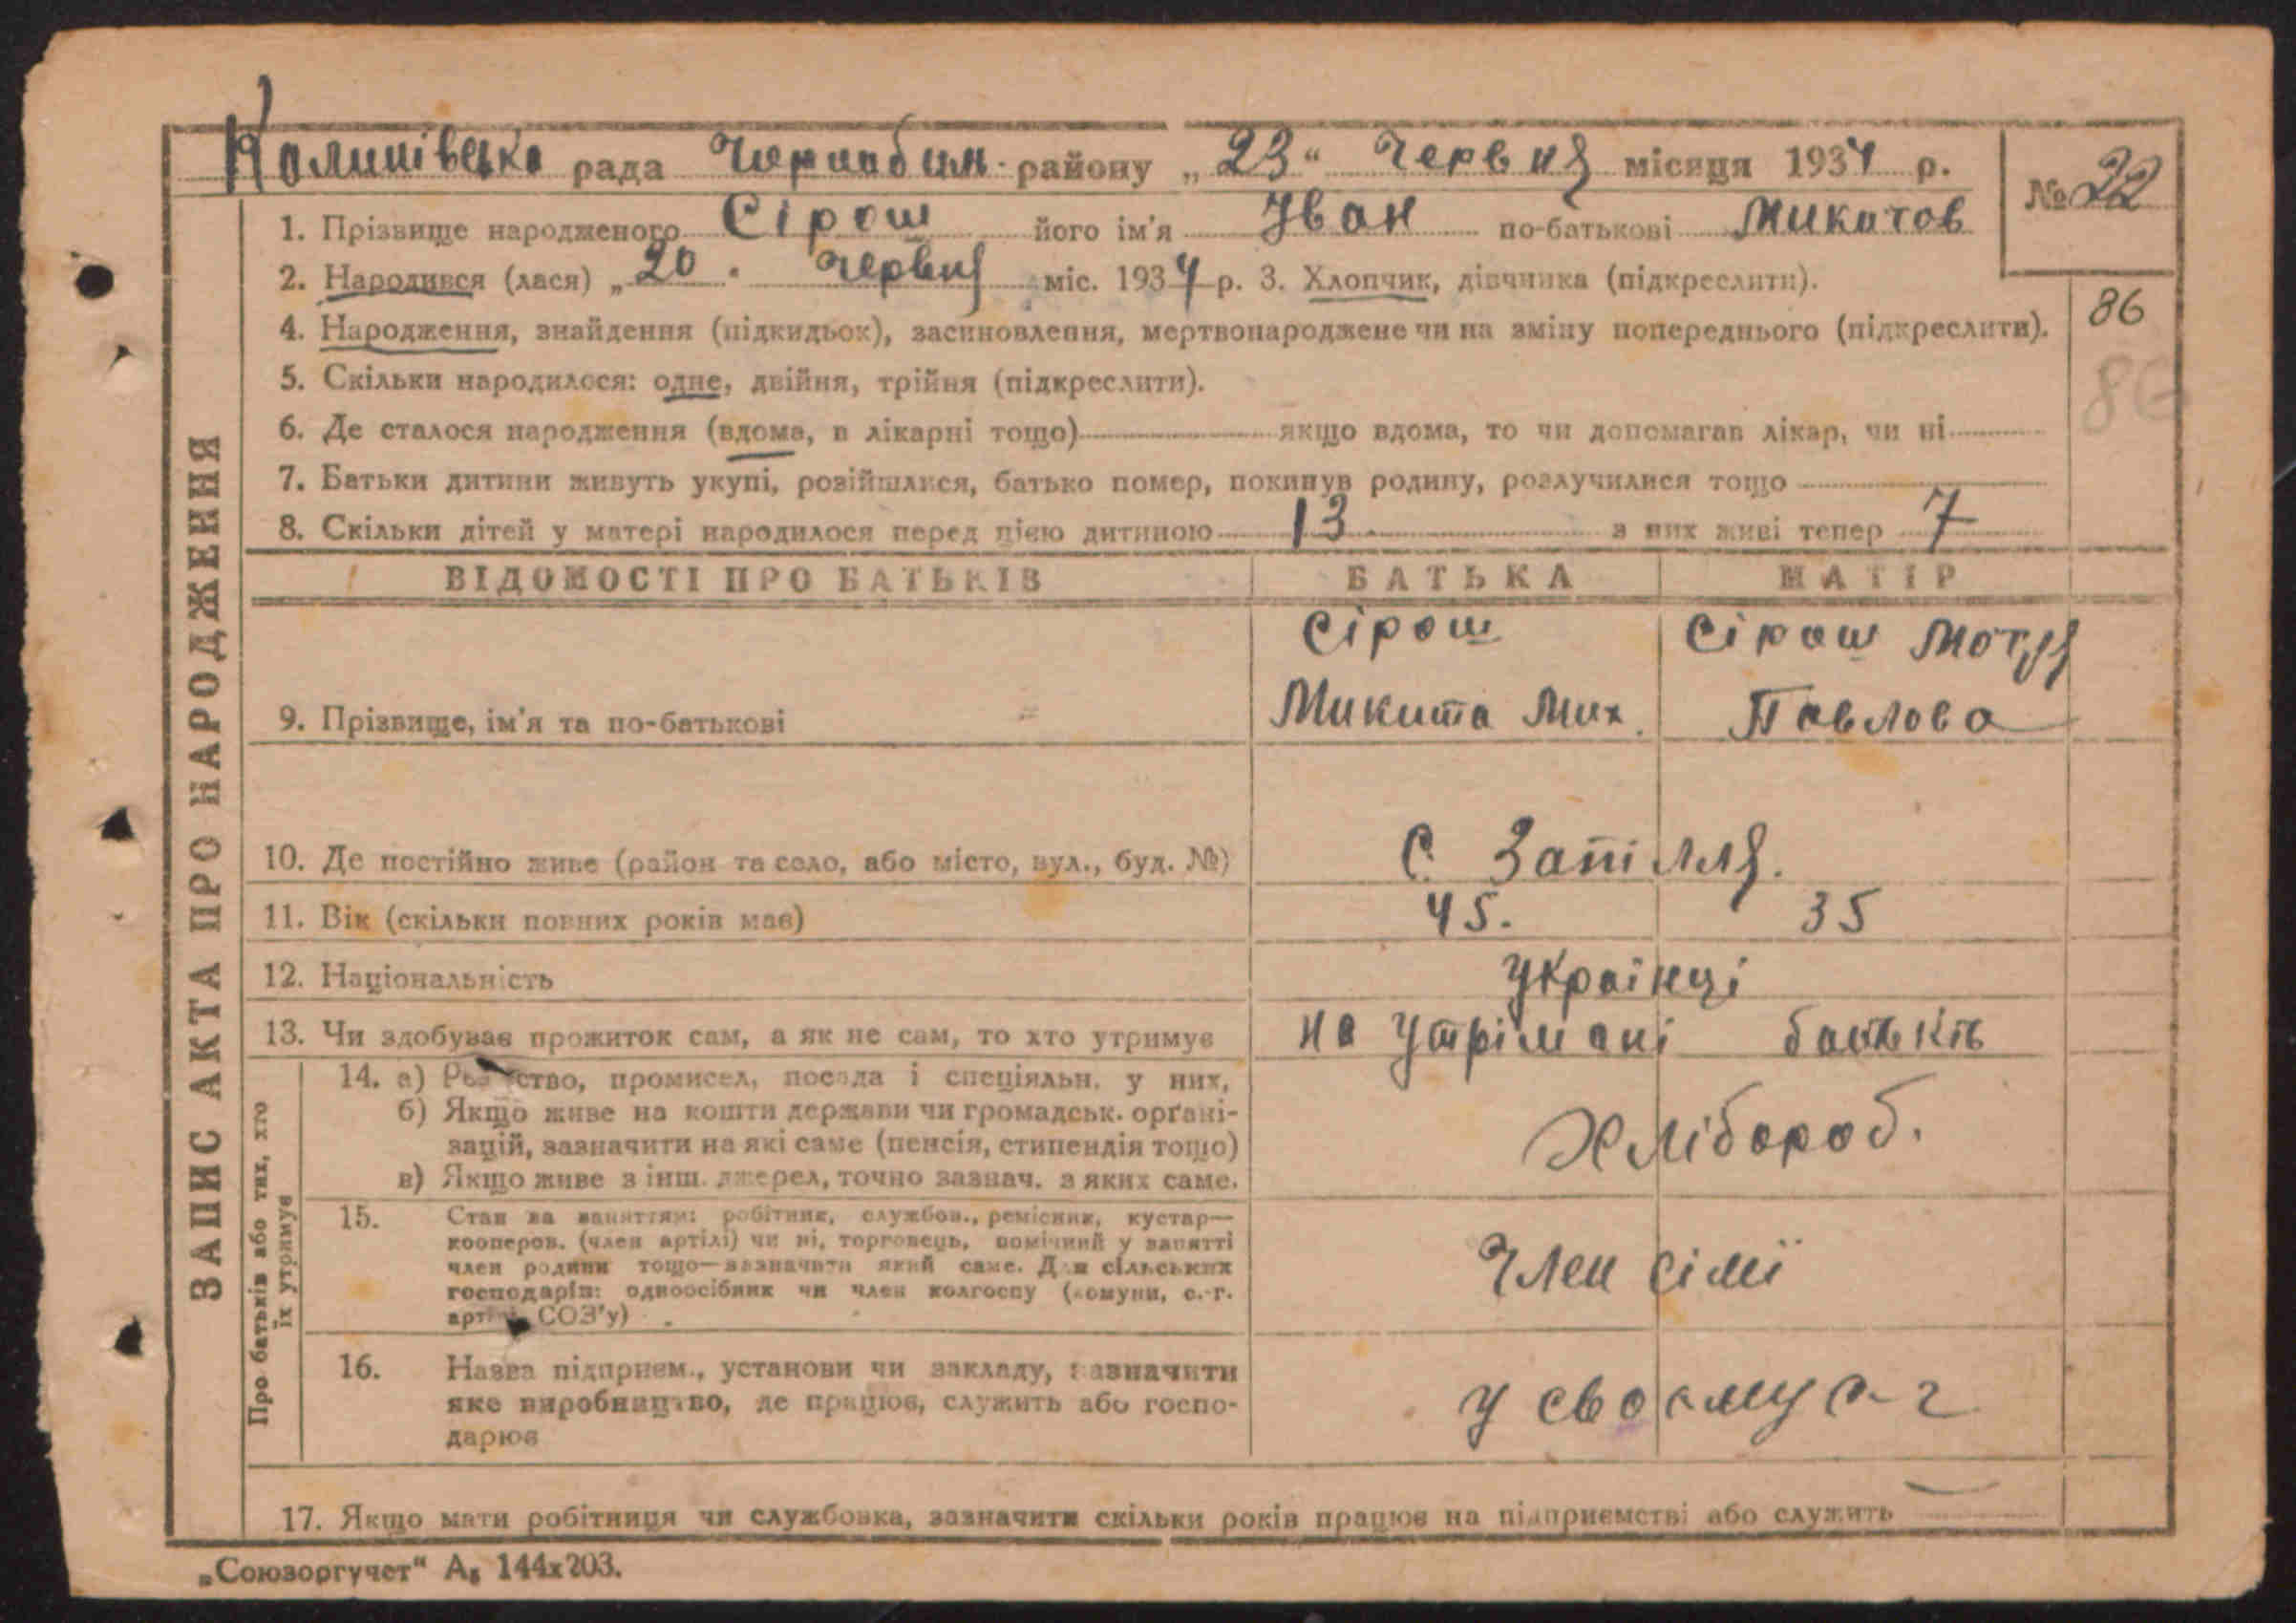 рада району „23“ Червня місяця 1934 р.
№ 22
1. Прізвище народженого Сірош його ім'я Іван по-батькові Микитов
2. Народився (лася) „20 " червня міс. 1934 р. 3. Хлопчик, дівчинка (підкреслити).
4. Народження, знайдення (підкидьок), засиновлення, мертвонароджене чи на зміну попереднього (підкреслити).
86
86
5. Скільки народилося: одне, двійня, трійня (підкреслити).
6. Де сталося народження (вдома, в лікарні тощо) якщо вдома, то чи допомагав лікар, чи ні
7. Батьки дитини живуть укупі, розійшлися, батько помер, покинув родину, розлучилися тощо
8. Скільки дітей у матері народилося перед цією дитиною 13 з них живі тепер 7
ВІДОМОСТІ ПРО БАТЬКІВ БАТЬКА МАТІР
Сірош Сірош Мотря
9. Прізвище, ім'я та по-батькові Микита Мих. Павлова
10. Де постійно живе (район та село, або місто, вул., буд. №) С. Запілля.
11. Вік (скільки повних років має) 45. 35
12. Національність Українці
13. Чи здобуває прожиток сам, а як не сам, то хто утримує на утрімані батьків
14. а) промисел, посада і спеціяльн. у них,
б) Якщо живе на кошти держави чи громадськ. орґані-
зацій, зазначити на які саме (пенсія, стипендія тощо)
Хлібороб.
в) Якщо живе з інш. джерел, точно зазнач. з яких саме.
15. Стан за заняттям: робітник, службов., ремісник, кустар—
кооперов. (член артілі) чи ні, торговець, помічний у занятті
член родини тощо—зазначити який саме. Для сільських
господарів: одноосібник чи член колгоспу (комуни, с.-г.
артілі, СОЗ'у)
Член сімї
16. Назва підприєм., установи чи закладу, зазначити
яке виробництво, де працює, служить або госпо-
дарює
у своєму с-г
17. Якщо мати робітниця чи службовка, зазначити скільки років працює на підприємстві або служить
ЗАПИС АКТА ПРО НАРОДЖЕННЯ
Про батьків або тих, хто
їх утримує
„Союзоргучет“ А₅ 144х203.